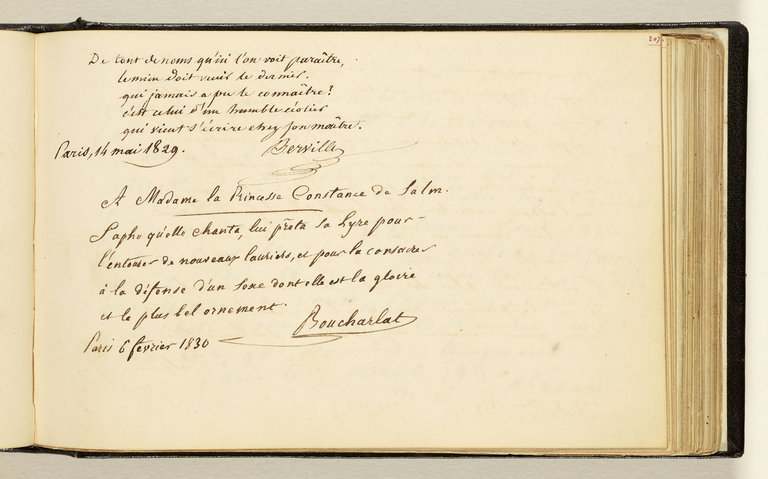 207.
De tant de noms qu'ici l'on voit paraître,
le mien doit venir le dernier.
qui jamais a pu le connaître?
c'est celui d'un humble écolier
qui vient s'écrire chez son maître.
Paris, 14 mai 1829. Berville
A Madame la Princesse Constance de Salm.
Sapho qu'elle chanta, lui prêta sa Lyre pour
l'entourer de nouveaux lauriers, et pour la consacrer
à la défense d'un sexe dont elle est la gloire
et le plus bel ornement.
Boucharlat
Paris 6 février 1830